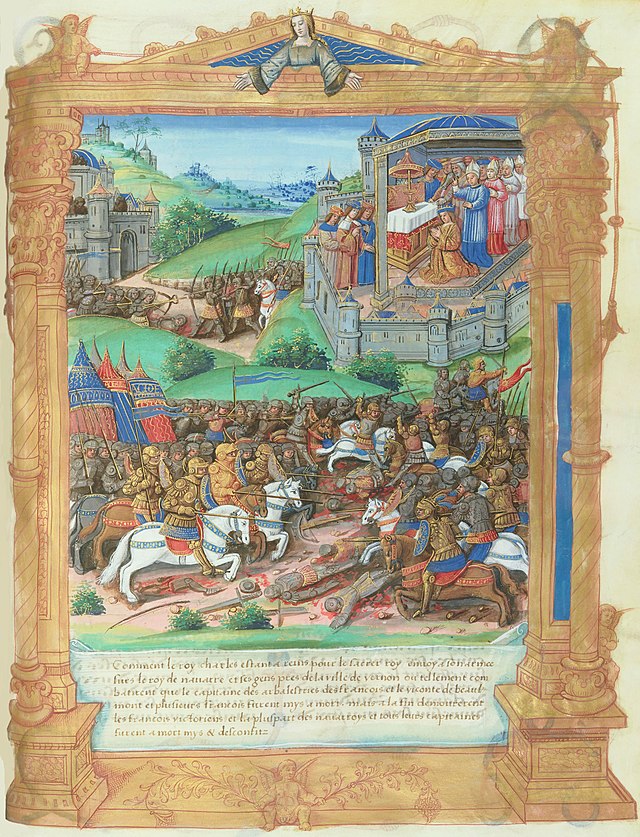 Comment le roy charles estant a reins pour le sacre roy envoya son armee
sus le roy de navarre et ses gens pres de la ville de vernon ou tellement com
batirent que le capitaine des arbalestries des francois et le viconte de beaul
mont et plusieurs francois furent mys a mort mais a la fin demourerent
les francois victoriens et la pluspart des navaroys et tous leurs capitaines
furent a mort mys & desconfitz